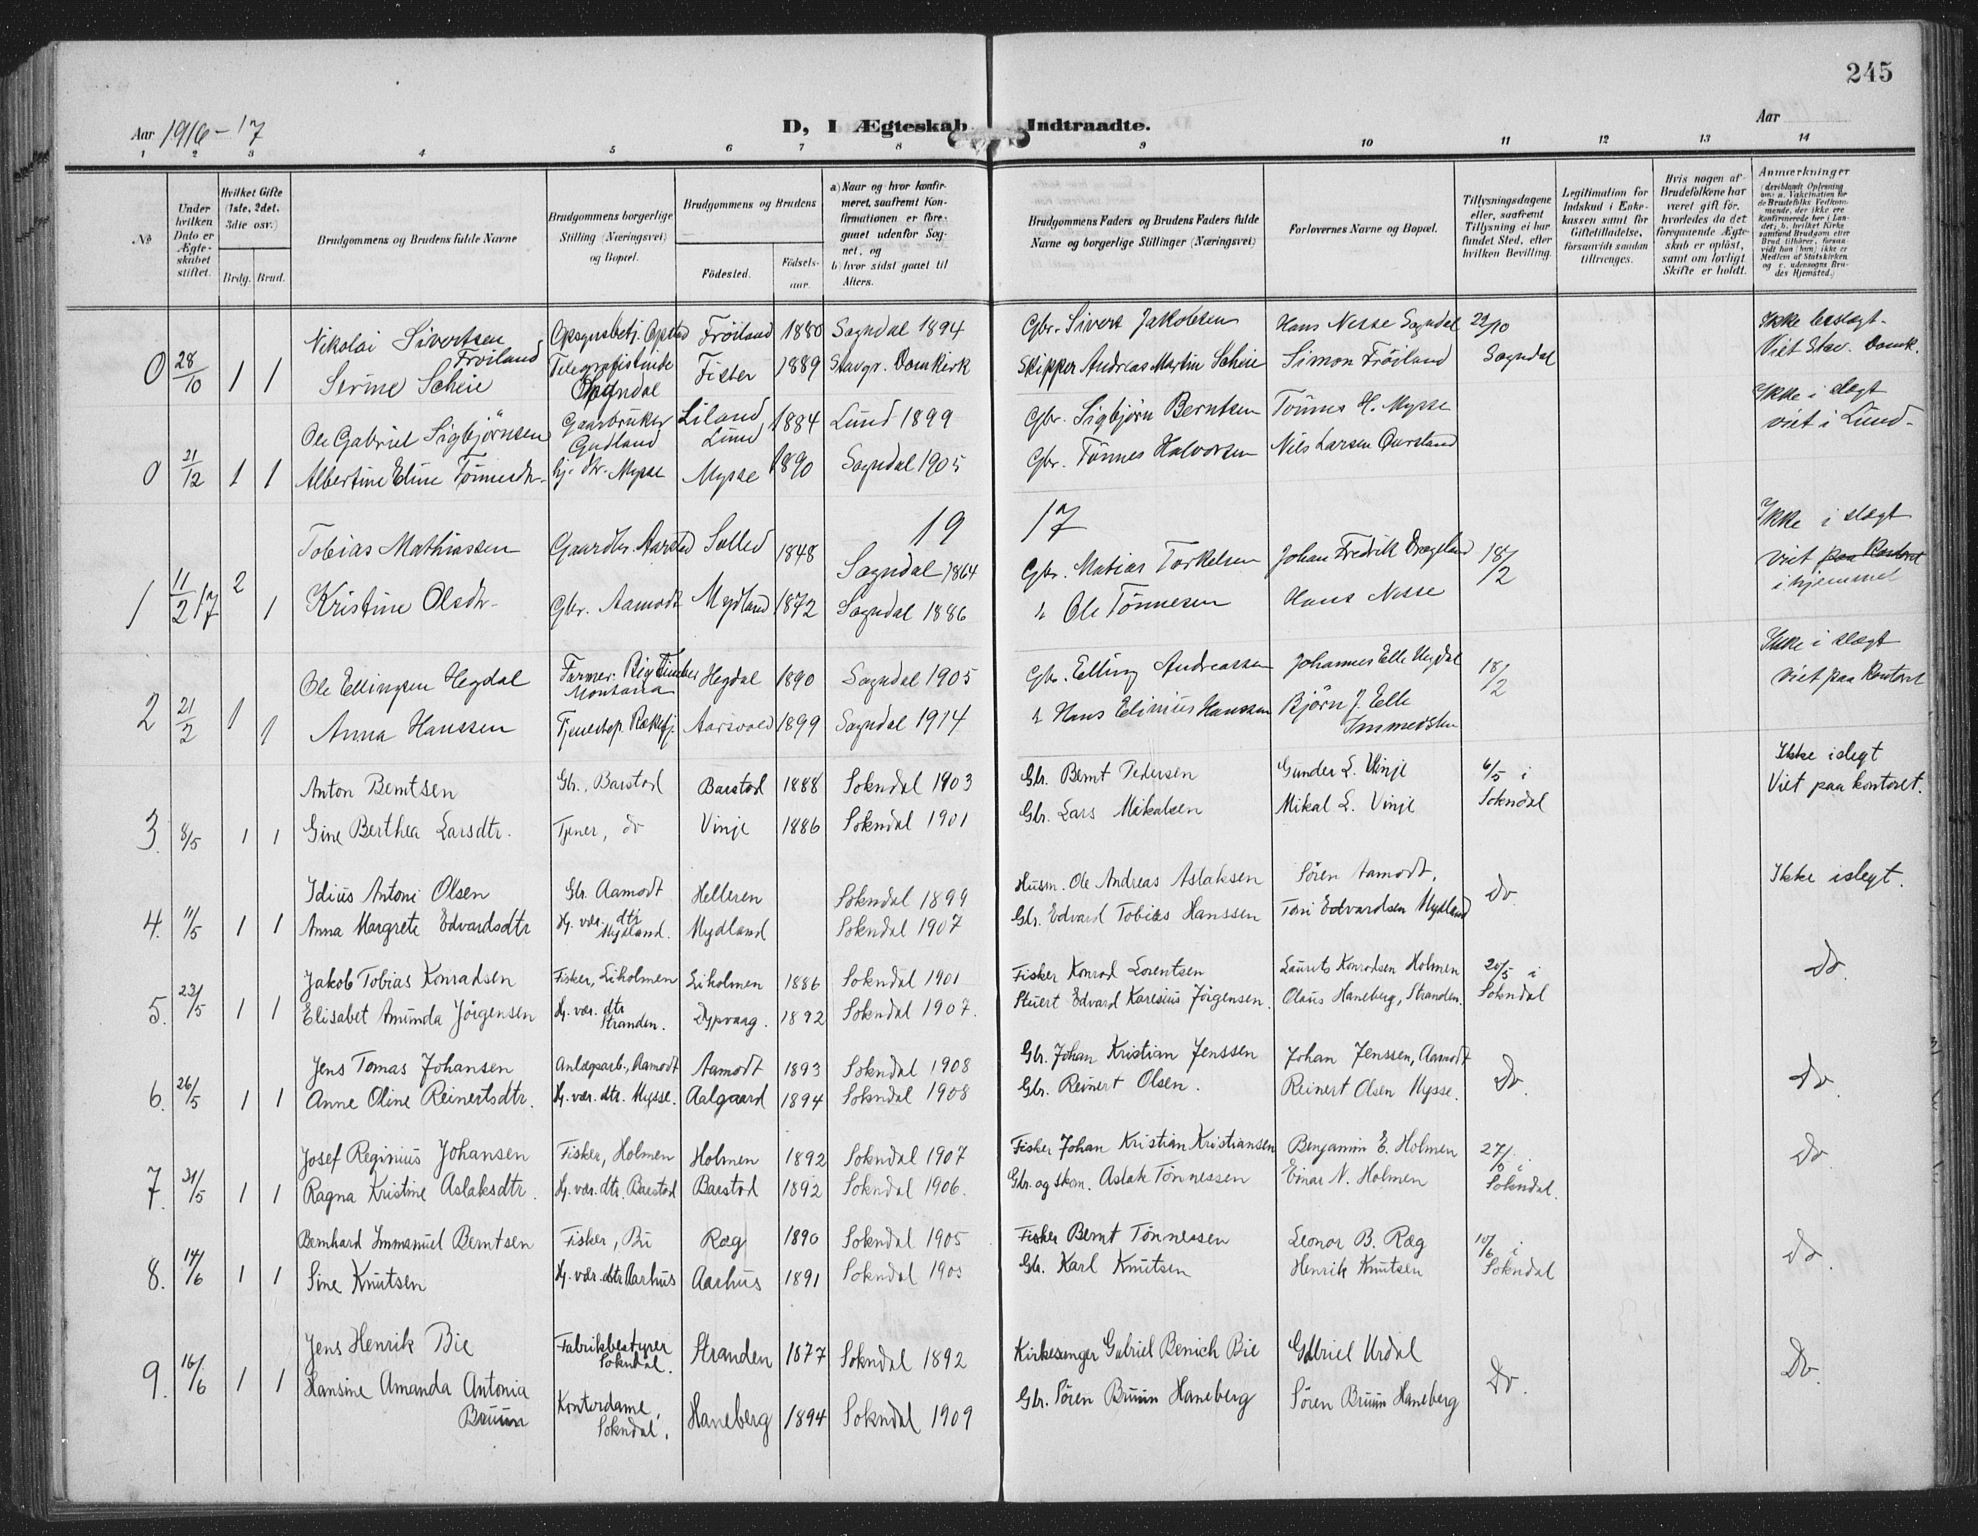 245
Aar 1916-17
D, I Ægteskab Indtraadte.
Aar
1 2 3 4 5 6 7 8 9 10 11 12 13 14
No
Under hvilken Dato er Ægteskabet stiftet.
Hvilket Gifte (1ste, 2det, 3die osv.)
Brdg. Brud.
Brudgommens og Brudens fulde Navne
Brudgommens borgerlige Stilling (Næringsvei) og Bopæl.
Brudgommens og Brudens
Födested.
Födsels-aar.
a) Naar og hvor konfirmeret, saafremt Konfirmationen er foregaaet udenfor Sognet, og
b) hvor sidst gaaet til Alters.
Brudgommens Faders og Brudens Faders fulde Navne og borgerlige Stillinger (Næringsvei)
Forlovernes Navne og Bopæl.
Tillysningsdagene eller, saafremt Tillysning ei har fundet Sted, efter hvilken Bevilling.
Legitimation for Indskud i Enkekassen samt for Giftetilladelse, forsaavidt saadan tiltrænges.
Hvis nogen af Brudefolkene har været gift för, hvorledes da det foregaaende Ægteskab er oplöst, samt om lovligt Skifte er holdt.
Anmærkninger
0 28/10 1 1
Nikolai Sivertsen Fröiland Fröiland 1880 Sogndal 1894 Gbr. Sivert Jakobsen Hans Nesse Sogndal 29/10 Ikke beslegt.
Serine Scheie Telegrafistinde Sogndal Fister 1889 Stavgr. Domkirk Skipper Andreas Martin Scheie Simon Fröiland Sogndal Viet Stav. Domk.
0 21/12 1 1
Ole Gabriel Sigbjörnsen Gaardbruker Gydland Liland Lund 1884 Lund 1899 Gbr. Sigbjörn Berntsen Tönnes H. Mysse Ikke i slegt
Albertine Eline Tönnesdtr. Mysse Mysse 1890 Sogndal 1905 Gbr. Tönnes Halvorsen Nils Larsen viet i Lund.
1917
1 11/2 17 2 1
Tobias Mathiassen Gaardbr. Aarstad 1848 Sogndal 1864 Gbr. Matias Torkelsen Johan Fredrik Drageland 18/2 Ikke i slægt
Kristine Olsdtr. Gbr. Aamodt Mydland 1872 Sogndal 1886 " Ole Tönnesen Hans Nesse viet paa Kontoret i hjemmet
2 21/2 1 1
Ole Ellingsen Hegdal Farmer. Big Timber Montana Hegdal 1890 Sogndal 1905 Gbr. Elling Andreassen Johannes Elle Hegdal 18/2 Ikke i slægt
Anna Hanssen Aarsvold 1899 Sogndal 1914 " Hans Elinius Hanssen Björn J. Elle viet paa Kontoret
3. 8/5 1 1
Anton Berntsen Gbr., Barstad Barstad 1888 Sokndal 1903 Gbr. Bernt Pedersen Gunder L. Vinje 6/5 i Ikke i slegt
Gine Berthea Larsdtr. Tjener, do Vinje 1886 Sokndal 1901 Gbr. Lars Mikalsen Mikal L. Vinje Sokndal Viet paa kontoret.
4. 11/5 1 1
Idius Antoni Olsen Gbr. Aamodt Helleren Sokndal 1899 Husm. Ole Andreas Aslaksen Sören Aamodt, Do. Ikke i slegt.
Anna Margrete Edvardsdtr Hj. vær. dtr Mydland. Mydland Sokndal 1907 Gbr. Edvard Tobias Hanssen Toni Edvardsen Mydland
5. 23/5 1 1
Jakob Tobias Konradsen Fisker, Liholmen Liholmen 1886 Sokndal 1901 Fisker Konrad Lorentsen Laurits Konradsen Holmen 20/5 i Do.
Elisabet Amunda Jörgensen Hj. vær. dtr Stranden. Dypvaag. 1892 Sokndal 1907. Stuert Edvard Karesius Jörgensen. Olaus Haneberg, Stranden. Sokndal
6. 26/5 1 1
Jens Tomas Johansen Anlægsarb., Aamodt Aamodt 1893 Sokndal 1908 Gbr. Johan Kristian Jenssen Johan Jenssen, Aamodt Do. Do.
Anne Oline Reinertsdtr. Hj. vær. dtr. Mysse. Aalgaard 1894 Sokndal 1908 Gbr. Reinert Olsen. Reinert Olsen Mysse.
7. 31/5 1 1
Josef Reginius Johansen Fisker, Holmen Holmen 1892 Sokndal 1907 Fisker Johan Kristian Kristiansen Benjamin E. Holmen 27/5 i Do.
Ragna Kristine Aslaksdtr. Hj. vær. dtr. Barstad Barstad 1892 Sokndal 1906. Gbr. og skom. Aslak Tönnessen Einar N. Holmen Sokndal.
8. 14/6 1 1
Bernhard Immanuel Berntsen Fisker, Bu Ræg 1890 Sokndal 1905 Fisker Bernt Tönnessen Leonar B. Ræg 10/6 i Do.
Sine Knutsen Hj. vær. dtr Aarhus Aarhus 1891 Sokndal 1905 Gbr. Karl Knutsen Henrik Knutsen Sokndal
9. 16/6 1 1
Jens Henrik Bie Fabrikbestyrer Sokndal. Stranden 1877 Sokndal 1892 Kirkesanger Gabriel Benich Bie Gabriel Urdal Do. Do.
Hansine Amanda Antonia Bruun Kontordame, Sokndal. Haneberg 1894 Sokndal 1909 Gbr. Sören Bruun Haneberg Sören Bruun Haneberg